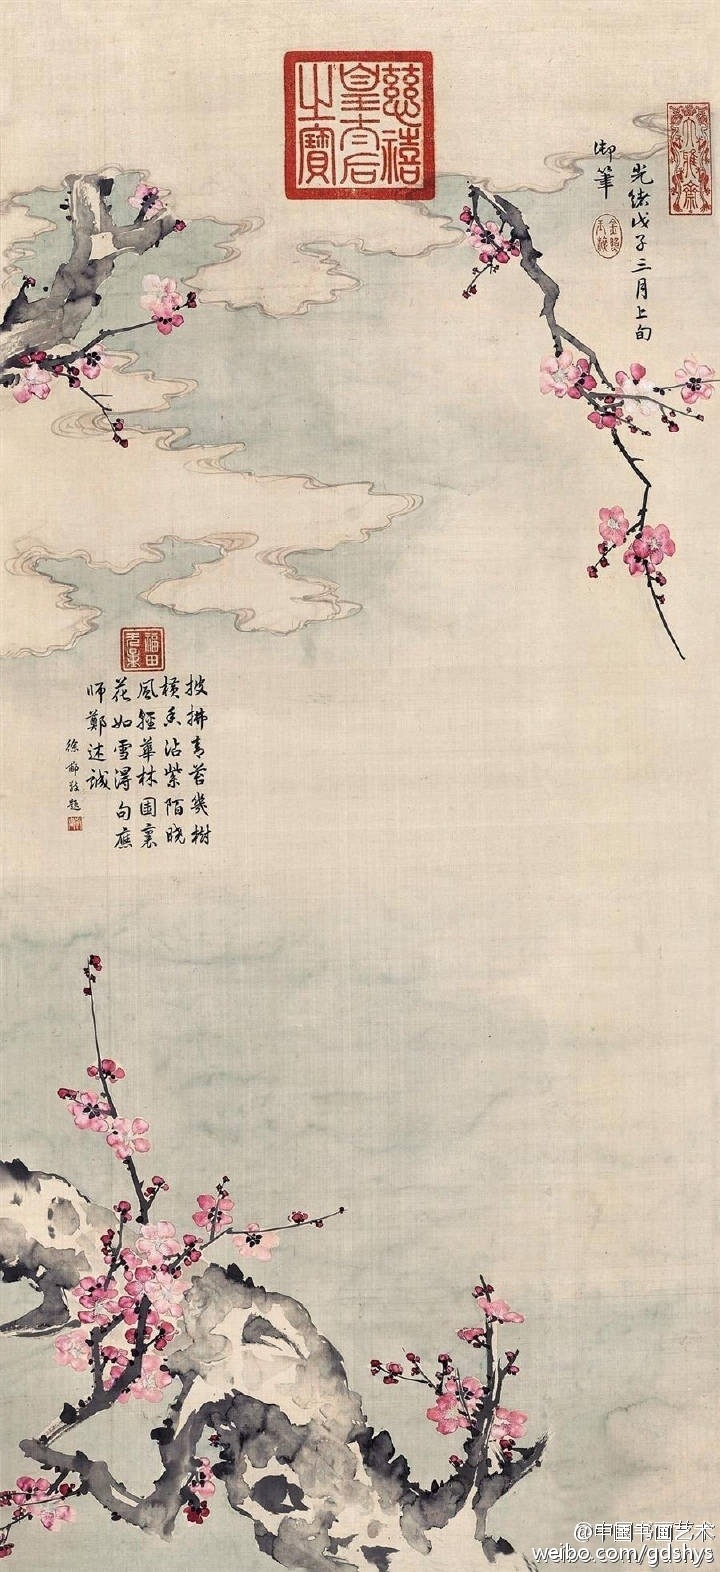 慈禧
皇太后
之寶
大雅齋
光緒戊子三月上旬
御筆
福田
披拂青苔幾樹
橫香沾紫陌曉
風輕華林園裏
花如雪得句應
師鄭述誠
徐郙敬題
@中国书画艺术
weibo.com/gdshys